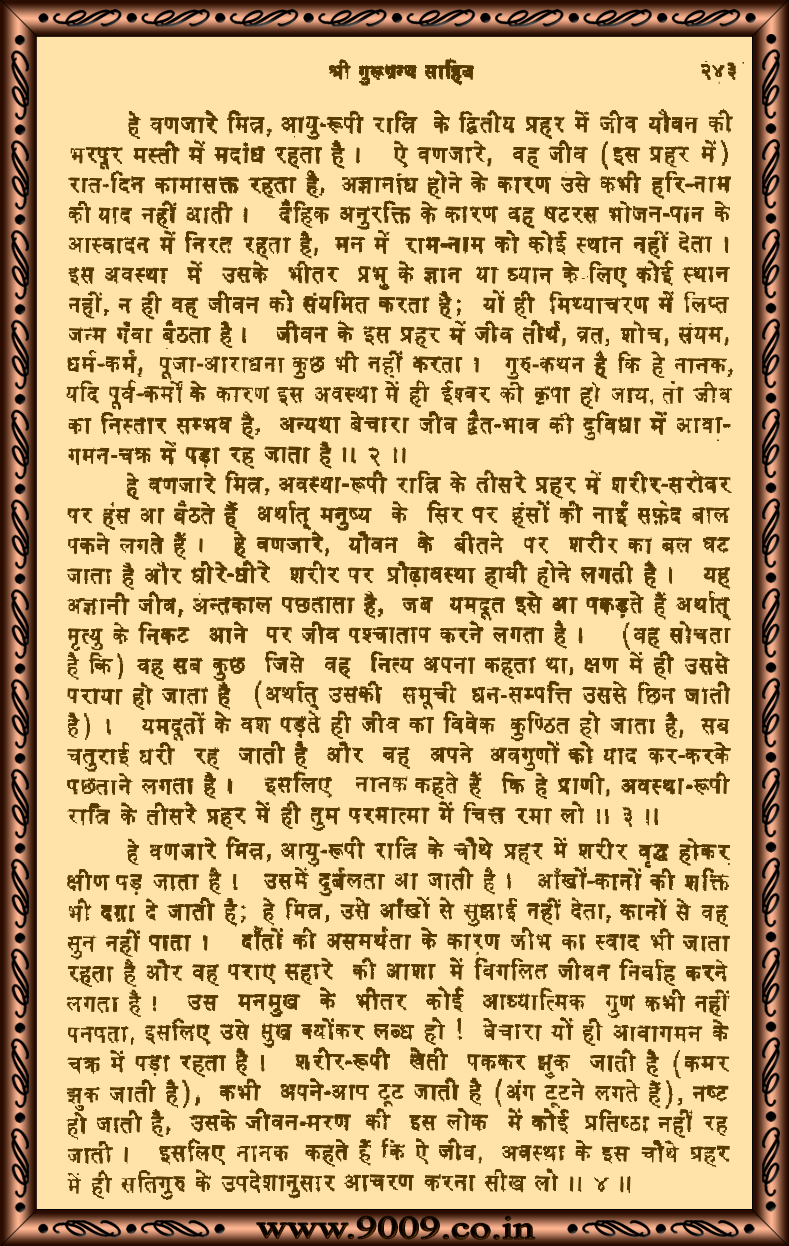 श्री गुरूग्रन्थ साहिब २४३
हे वणजारे मित्र, आयु-रूपी रात्रि के द्वितीय प्रहर में जीव यौवन की
भरपूर मस्ती में मदांध रहता है । ऐ वणजारे, वह जीव (इस प्रहर में)
रात-दिन कामासक्त रहता है, अज्ञानांध होने के कारण उसे कभी हरि-नाम
की याद नहीं आती । दैहिक अनुरक्ति के कारण वह षटरस भोजन-पान के
आस्वादन में निरत रहता है, मन में राम-नाम को कोई स्थान नहीं देता ।
इस अवस्था में उसके भीतर प्रभु के ज्ञान या ध्यान के लिए कोई स्थान
नहीं, न ही वह जीवन को संयमित करता है; यों ही मिथ्याचरण में लिप्त
जन्म गँवा बैठता है । जीवन के इस प्रहर में जीव तीर्थ, व्रत, शोच, संयम,
धर्म-कर्म, पूजा-आराधना कुछ भी नहीं करता । गुरु-कथन है कि हे नानक,
यदि पूर्व-कर्मों के कारण इस अवस्था में ही ईश्वर की कृपा हो जाय, तो जीव
का निस्तार सम्भव है, अन्यथा बेचारा जीव द्वैत-भाव की दुविधा में आवा-
गमन-चक्र में पड़ा रह जाता है ॥ २ ॥
हे वणजारे मित्र, अवस्था-रूपी रात्रि के तीसरे प्रहर में शरीर-सरोवर
पर हंस आ बैठते हैं अर्थात् मनुष्य के सिर पर हंसों की नाईं सफ़ेद बाल
पकने लगते हैं । हे वणजारे, यौवन के बीतने पर शरीर का बल घट
जाता है और धीरे-धीरे शरीर पर प्रौढ़ावस्था हावी होने लगती है । यह
अज्ञानी जीव, अन्तकाल पछताता है, जब यमदूत इसे आ पकड़ते हैं अर्थात्
मृत्यु के निकट आने पर जीव पश्चाताप करने लगता है । (वह सोचता
है कि) वह सब कुछ जिसे वह नित्य अपना कहता था, क्षण में ही उससे
पराया हो जाता है (अर्थात् उसकी समूची धन-सम्पत्ति उससे छिन जाती
है) । यमदूतों के वश पड़ते ही जीव का विवेक कुण्ठित हो जाता है, सब
चतुराई धरी रह जाती है और वह अपने अवगुणों को याद कर-करके
पछताने लगता है । इसलिए नानक कहते हैं कि हे प्राणी, अवस्था-रूपी
रात्रि के तीसरे प्रहर में ही तुम परमात्मा में चित्त रमा लो ॥ ३ ॥
हे वणजारे मित्र, आयु-रूपी रात्रि के चौथे प्रहर में शरीर वृद्ध होकर
क्षीण पड़ जाता है । उसमें दुर्बलता आ जाती है । आँखों-कानों की शक्ति
भी दग़ा दे जाती है; हे मित्र, उसे आँखों से सुझाई नहीं देता, कानों से वह
सुन नहीं पाता । दाँतों की असमर्थता के कारण जीभ का स्वाद भी जाता
रहता है और वह पराए सहारे की आशा में विगलित जीवन निर्वाह करने
लगता है । उस मनमुख के भीतर कोई आध्यात्मिक गुण कभी नहीं
पनपता, इसलिए उसे सुख क्योंकर लब्ध हो ! बेचारा यों ही आवागमन के
चक्र में पड़ा रहता है । शरीर-रूपी खेती पककर झुक जाती है (कमर
झुक जाती है), कभी अपने-आप टूट जाती है (अंग टूटने लगते हैं), नष्ट
हो जाती है, उसके जीवन-मरण की इस लोक में कोई प्रतिष्ठा नहीं रह
जाती । इसलिए नानक कहते हैं कि ऐ जीव, अवस्था के इस चौथे प्रहर
में ही सतिगुरु के उपदेशानुसार आचरण करना सीख लो ॥ ४ ॥
www.9009.co.in